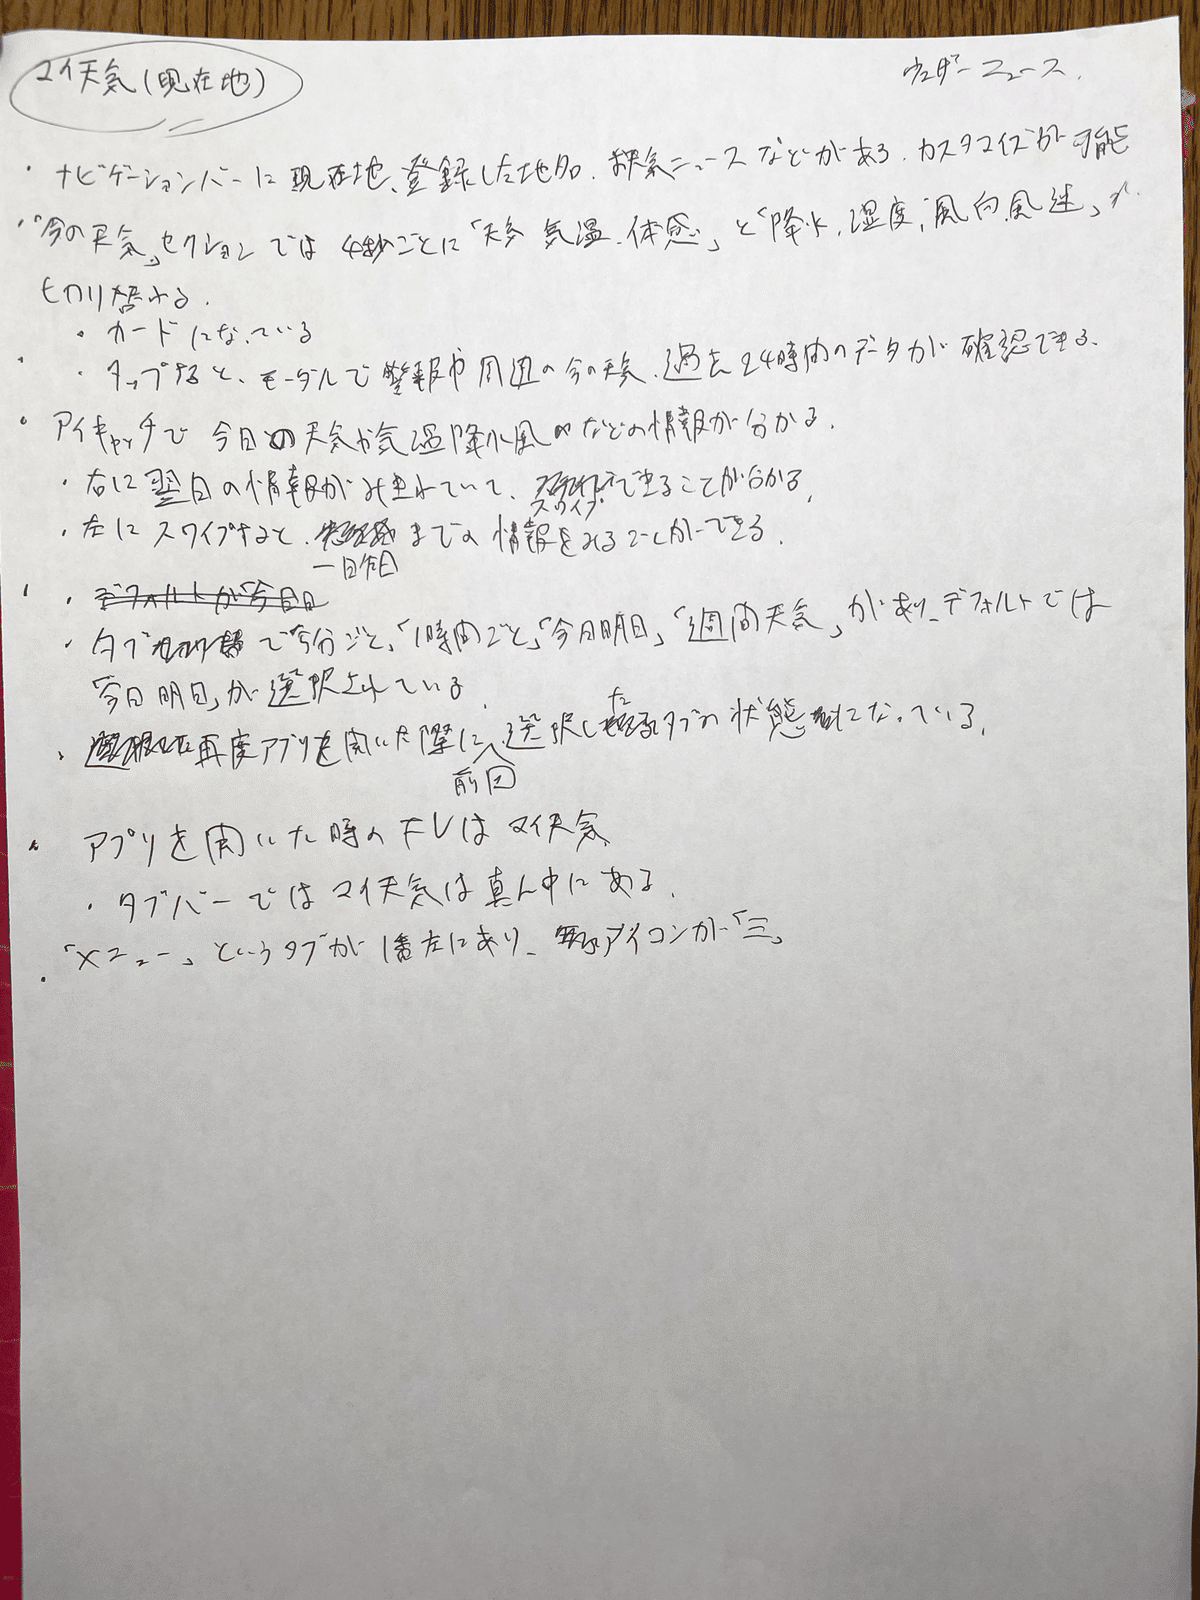 マイ天気(現在地)
ウェザーニュース.
・ナビゲーションバーに現在地、登録した地点、お天気ニュースなどがある. カスタマイズが可能
・「今の天気」セクションでは4秒ごとに「天気 気温、体感」と「降水、湿度、風向、風速」が
切り替わる.
・カードになっている
・タップすると、モーダルで警報や周辺の今の天気、過去24時間のデータが確認できる.
・アイキャッチで今日の天気や気温降水風などの情報が分かる.
・右に翌日の情報がみきれていて、スワイプできることが分かる.
・左にスワイプすると、一日先までの情報をみることができる.
・デフォルトが今日日
・タブ で「5分ごと」「1時間ごと」「今日明日」「週間天気」があり、デフォルトでは
「今日明日」が選択されている.
・再度アプリを開いた際に、前回選択したタブの状態になっている.
・アプリを開いた時のTOPはマイ天気
・タブバーではマイ天気は真ん中にある.
・「メニュー」というタブが1番左にあり、アイコンが「三」